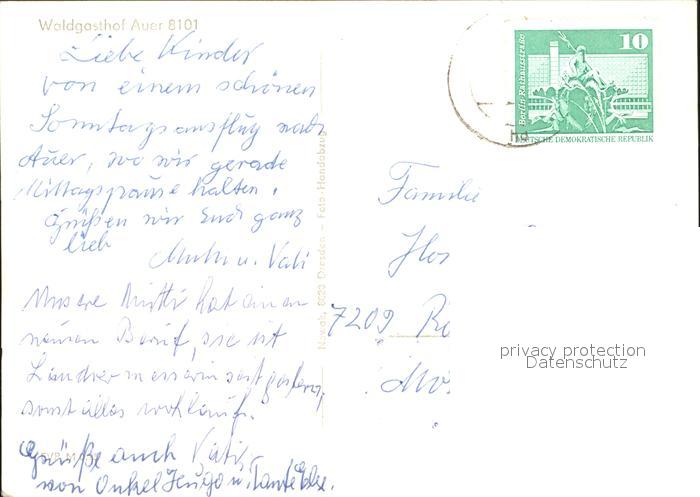 Waldgasthof Auer 8101
Liebe Kinder
von einem schönen
Sonntagsausflug nach
Auer, wo wir gerade
Mittagspause halten,
Grüßen wir Euch ganz
lieb
Mutti u. Vati
Unsere Mutti hat einen
neuen Beruf, sie ist
Landvermesserin seit gestern,
sonst alles wohlauf.
Grüße auch Vati
von Onkel Hugo u. Tante Else.
Nowak, 8020 Dresden - Foto-Handabzug
Berlin, Rathausstraße
10
DEUTSCHE DEMOKRATISCHE REPUBLIK
Familie
7209
privacy protection
Datenschutz